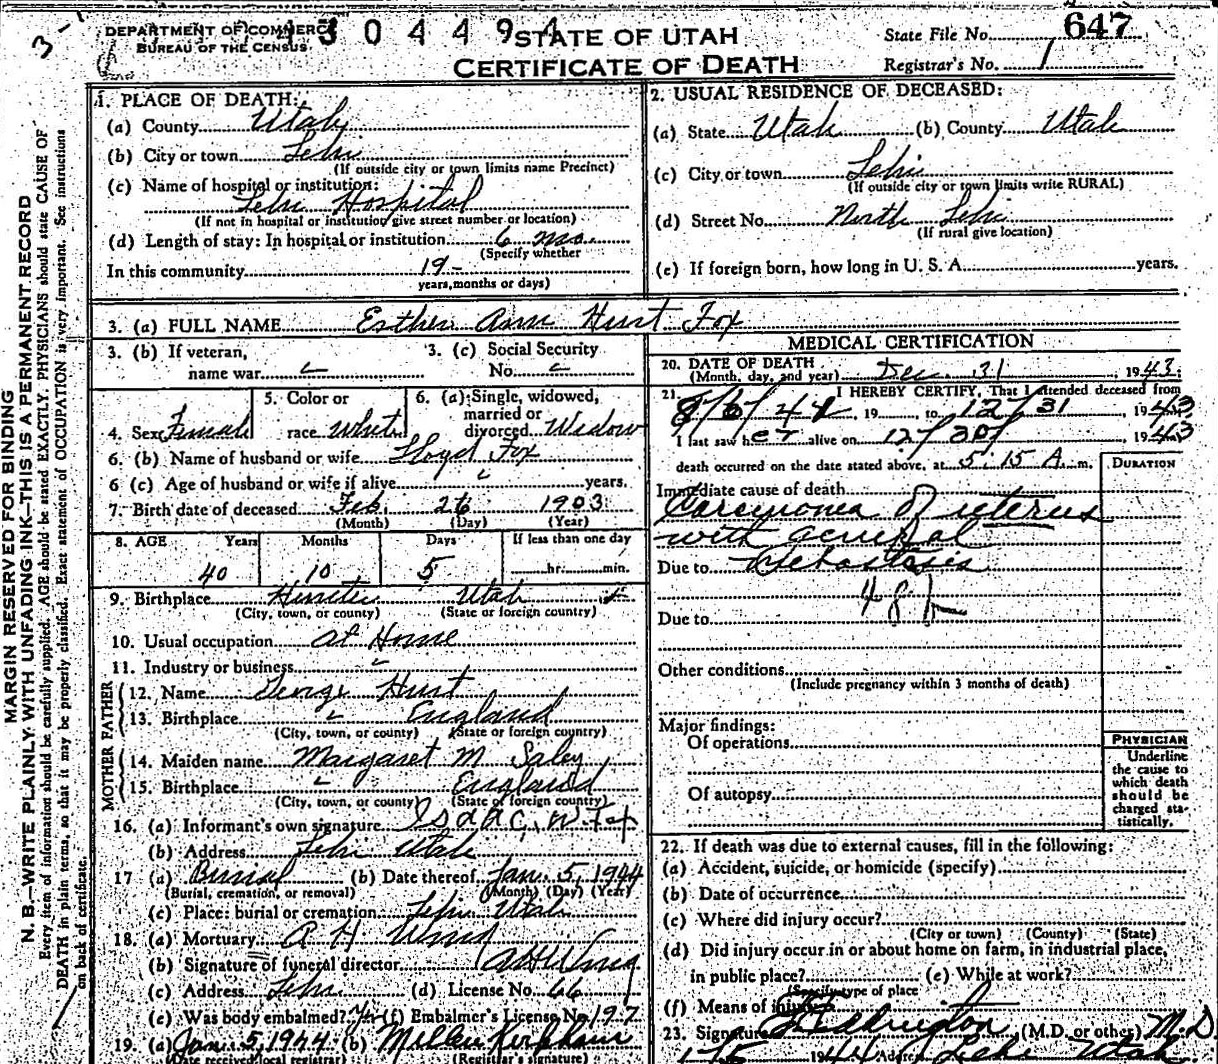 3-1
DEPARTMENT OF COMMERCE
BUREAU OF THE CENSUS
304494
STATE OF UTAH
CERTIFICATE OF DEATH
State File No. 647
Registrar's No. 1
MARGIN RESERVED FOR BINDING
N. B.—WRITE PLAINLY WITH UNFADING INK—THIS IS A PERMANENT RECORD
Every item of information should be carefully supplied. AGE should be stated EXACTLY. PHYSICIANS should state CAUSE OF
DEATH in plain terms, so that it may be properly classified. Exact statement of OCCUPATION is very important. See instructions
on back of certificate.
1. PLACE OF DEATH:
(a) County Utah
(b) City or town Lehi
(If outside city or town limits name Precinct)
(c) Name of hospital or institution:
Lehi Hospital
(If not in hospital or institution give street number or location)
(d) Length of stay: In hospital or institution 6 mo.
(Specify whether
In this community 19-
years, months or days)
2. USUAL RESIDENCE OF DECEASED:
(a) State Utah (b) County Utah
(c) City or town Lehi
(If outside city or town limits write RURAL)
(d) Street No. North Lehi
(If rural give location)
(e) If foreign born, how long in U. S. A. years.
3. (a) FULL NAME Esther Ann Hurst Fox
3. (b) If veteran,
name war
3. (c) Social Security
No.
4. Sex Female
5. Color or
race White
6. (a) Single, widowed,
married or
divorced Widow
6. (b) Name of husband or wife Lloyd Fox
6 (c) Age of husband or wife if alive years.
7. Birth date of deceased Feb. 26 1903
(Month) (Day) (Year)
8. AGE Years Months Days If less than one day
40 10 5 hr. min.
9. Birthplace Utah
(City, town, or county) (State or foreign country)
10. Usual occupation at Home
11. Industry or business
FATHER
12. Name George Hurst
13. Birthplace England
(City, town, or county) (State or foreign country)
MOTHER
14. Maiden name Margaret M
15. Birthplace England
(City, town, or county) (State or foreign country)
16. (a) Informant's own signature Isaac W. Fox
(b) Address Lehi Utah
17 (a) Burial (b) Date thereof Jan. 5, 1944
(Burial, cremation, or removal) (Month) (Day) (Year)
(c) Place: burial or cremation Lehi Utah
18. (a) Mortuary A H
(b) Signature of funeral director
(c) Address Lehi (d) License No. 66
(e) Was body embalmed? (f) Embalmer's License No. 197
19. (a) Jan. 5, 1944 (b)
(Date received local registrar) (Registrar's signature)
MEDICAL CERTIFICATION
20. DATE OF DEATH
(Month, day, and year) Dec. 31, 1943
21. I HEREBY CERTIFY, That I attended deceased from
19 to 12/31, 1943
I last saw her alive on 12/30/ 1943
death occurred on the date stated above, at 5:15 A. m.
DURATION
Immediate cause of death
Carcinoma of uterus
with general
Due to metastasis
48
Due to
Other conditions
(Include pregnancy within 3 months of death)
Major findings:
Of operations
Of autopsy
PHYSICIAN
Underline
the cause to
which death
should be
charged sta-
tistically.
22. If death was due to external causes, fill in the following:
(a) Accident, suicide, or homicide (specify)
(b) Date of occurrence
(c) Where did injury occur?
(City or town) (County) (State)
(d) Did injury occur in or about home on farm, in industrial place,
in public place? (e) While at work?
(Specify type of place
(f) Means of injury
23. Signature Eddington (M.D. or other) M.D
1944 Address Lehi Utah